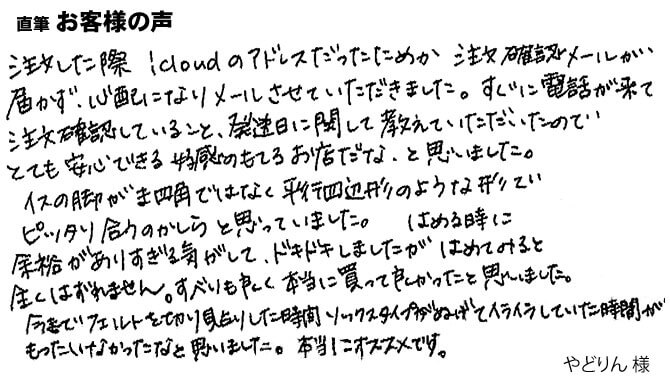 直筆 お客様の声
注文した際 icloudのアドレスだったためか 注文確認メールが
届かず、心配になりメールさせていただきました。すぐに電話が来て
注文確認していること、発送日に関して教えていただいたので
とても安心できる好感のもてるお店だな、と思いました。
イスの脚がま四角ではなく平行四辺形のような形で
ピッタリ合うのかしらと思っていました。 はめる時に
余裕がありすぎる気がして、ドキドキしましたが はめてみると
全くはずれません。すべりも良く 本当に買って良かったと思いました。
今までフェルトを切り貼りした時間 ソックスタイプがぬげてイライラしていた時間が
もったいなかったなと思いました。本当にオススメです。
やどりん 様